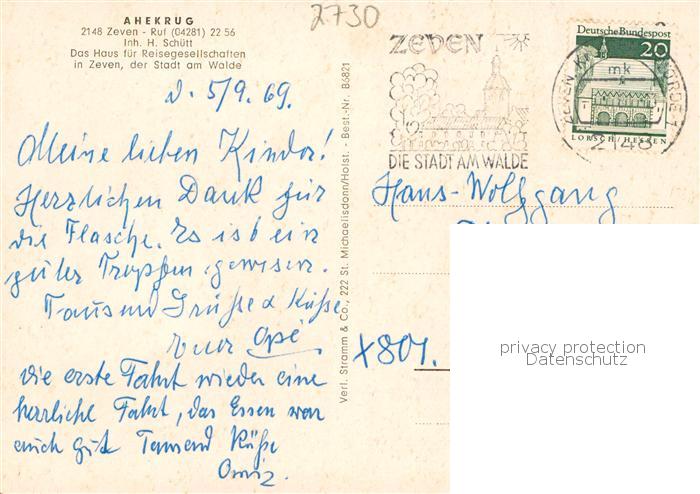 AHEKRUG
2148 Zeven - Ruf (04281) 22 56
Inh. H. Schütt
Das Haus für Reisegesellschaften
in Zeven, der Stadt am Walde
2730
d. 5/9. 69.
Meine lieben Kinder!
Herzlichen Dank für
die Flasche. Es ist ein
guter Tropfen gewesen.
Tausend Grüße & Küsse
Euer Opi
die erste Fahrt wieder eine
herrliche Fahrt, das Essen war
auch gut Tausend Küsse
Omi
Verl. Stramm & Co., 222 St. Michaelisdonn/Holst. - Best.-Nr. B6821
ZEVEN
DIE STADT AM WALDE
Deutsche Bundespost
20
LORSCH/HESSEN
ZEVEN
mk
2148
Hans-Wolfgang
X801.
privacy protection
Datenschutz